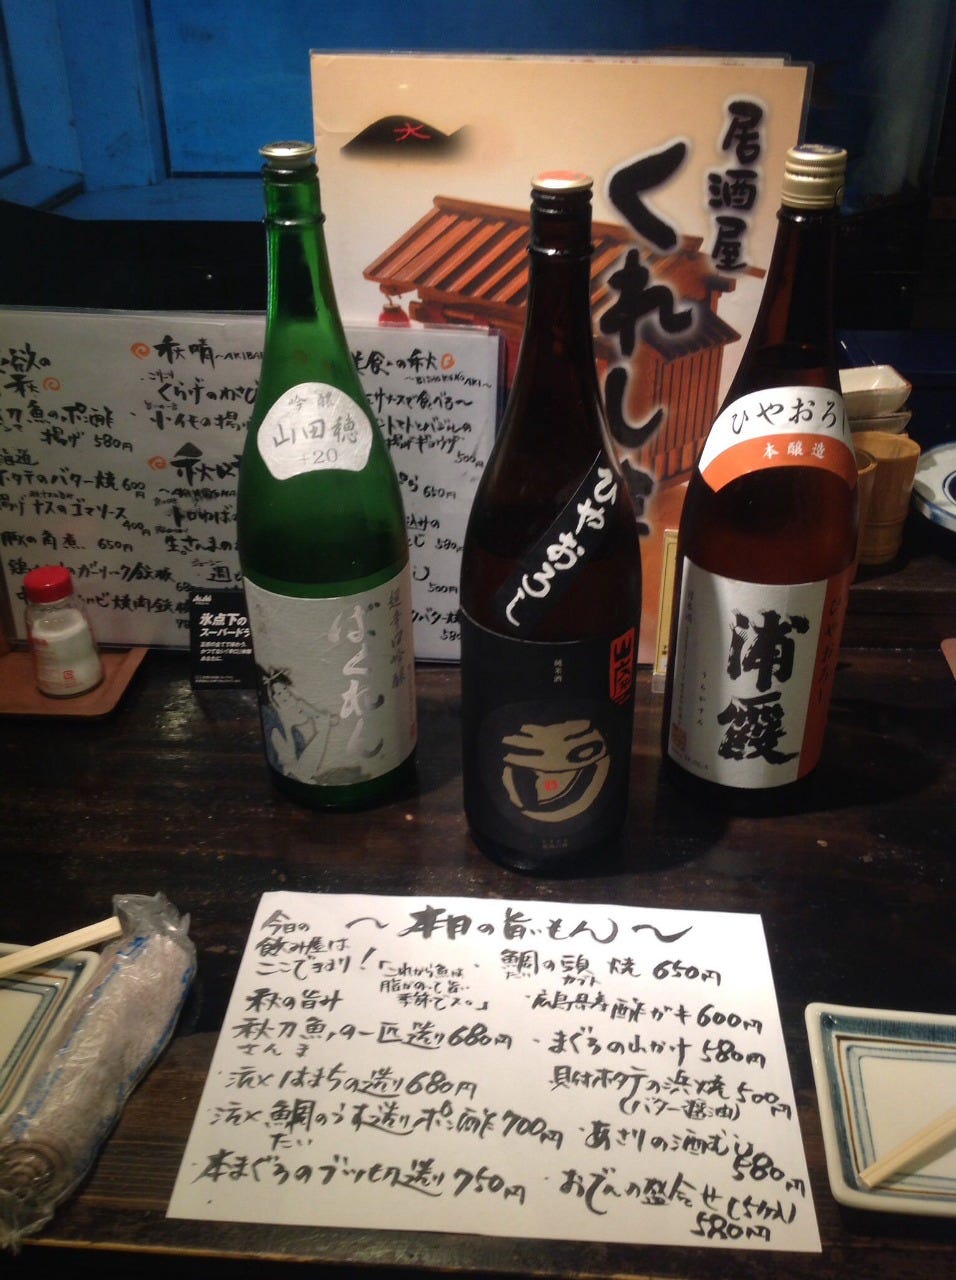 居酒屋
くれしま
大
秋晴
～AKIBA
くらげのわさび
小イモの揚げ
刀魚のポン酢
揚げ 580円
タテのバター焼 600円
ナスのゴマソース
400円
豚の角煮 650円
のガーリック鉄板
美食の秋
ナスで食べる～
トマトとバジルの
揚げギョウザ
500円
650円
580円
バター焼
Asahi
氷点下の
スーパードラ
吟醸
山田穂
+20
超辛口吟醸
ばくれん
ひやおろし
純米酒
ひやおろし
本醸造
日本酒
浦霞
うらかすみ
ひやおろし
～本日の旨いもん～
今日の
飲み屋は
ここできまり！
「これから魚は
脂がのって旨い
季節でス。」
秋の旨み
秋刀魚の一匹造り 680円
さんま
・活〆はまちの造り 680円
・活〆鯛のうす造りポン酢 700円
たい
・本まぐろのブツ切造り 750円
・鯛の頭焼 650円
たい カブト
・広島県産酢ガキ 600円
・まぐろの山かけ 580円
貝付ホタテの浜焼 500円
(バター醤油)
・あさりの酒むし
580円
・おでんの盛合せ(5ケ入)
580円